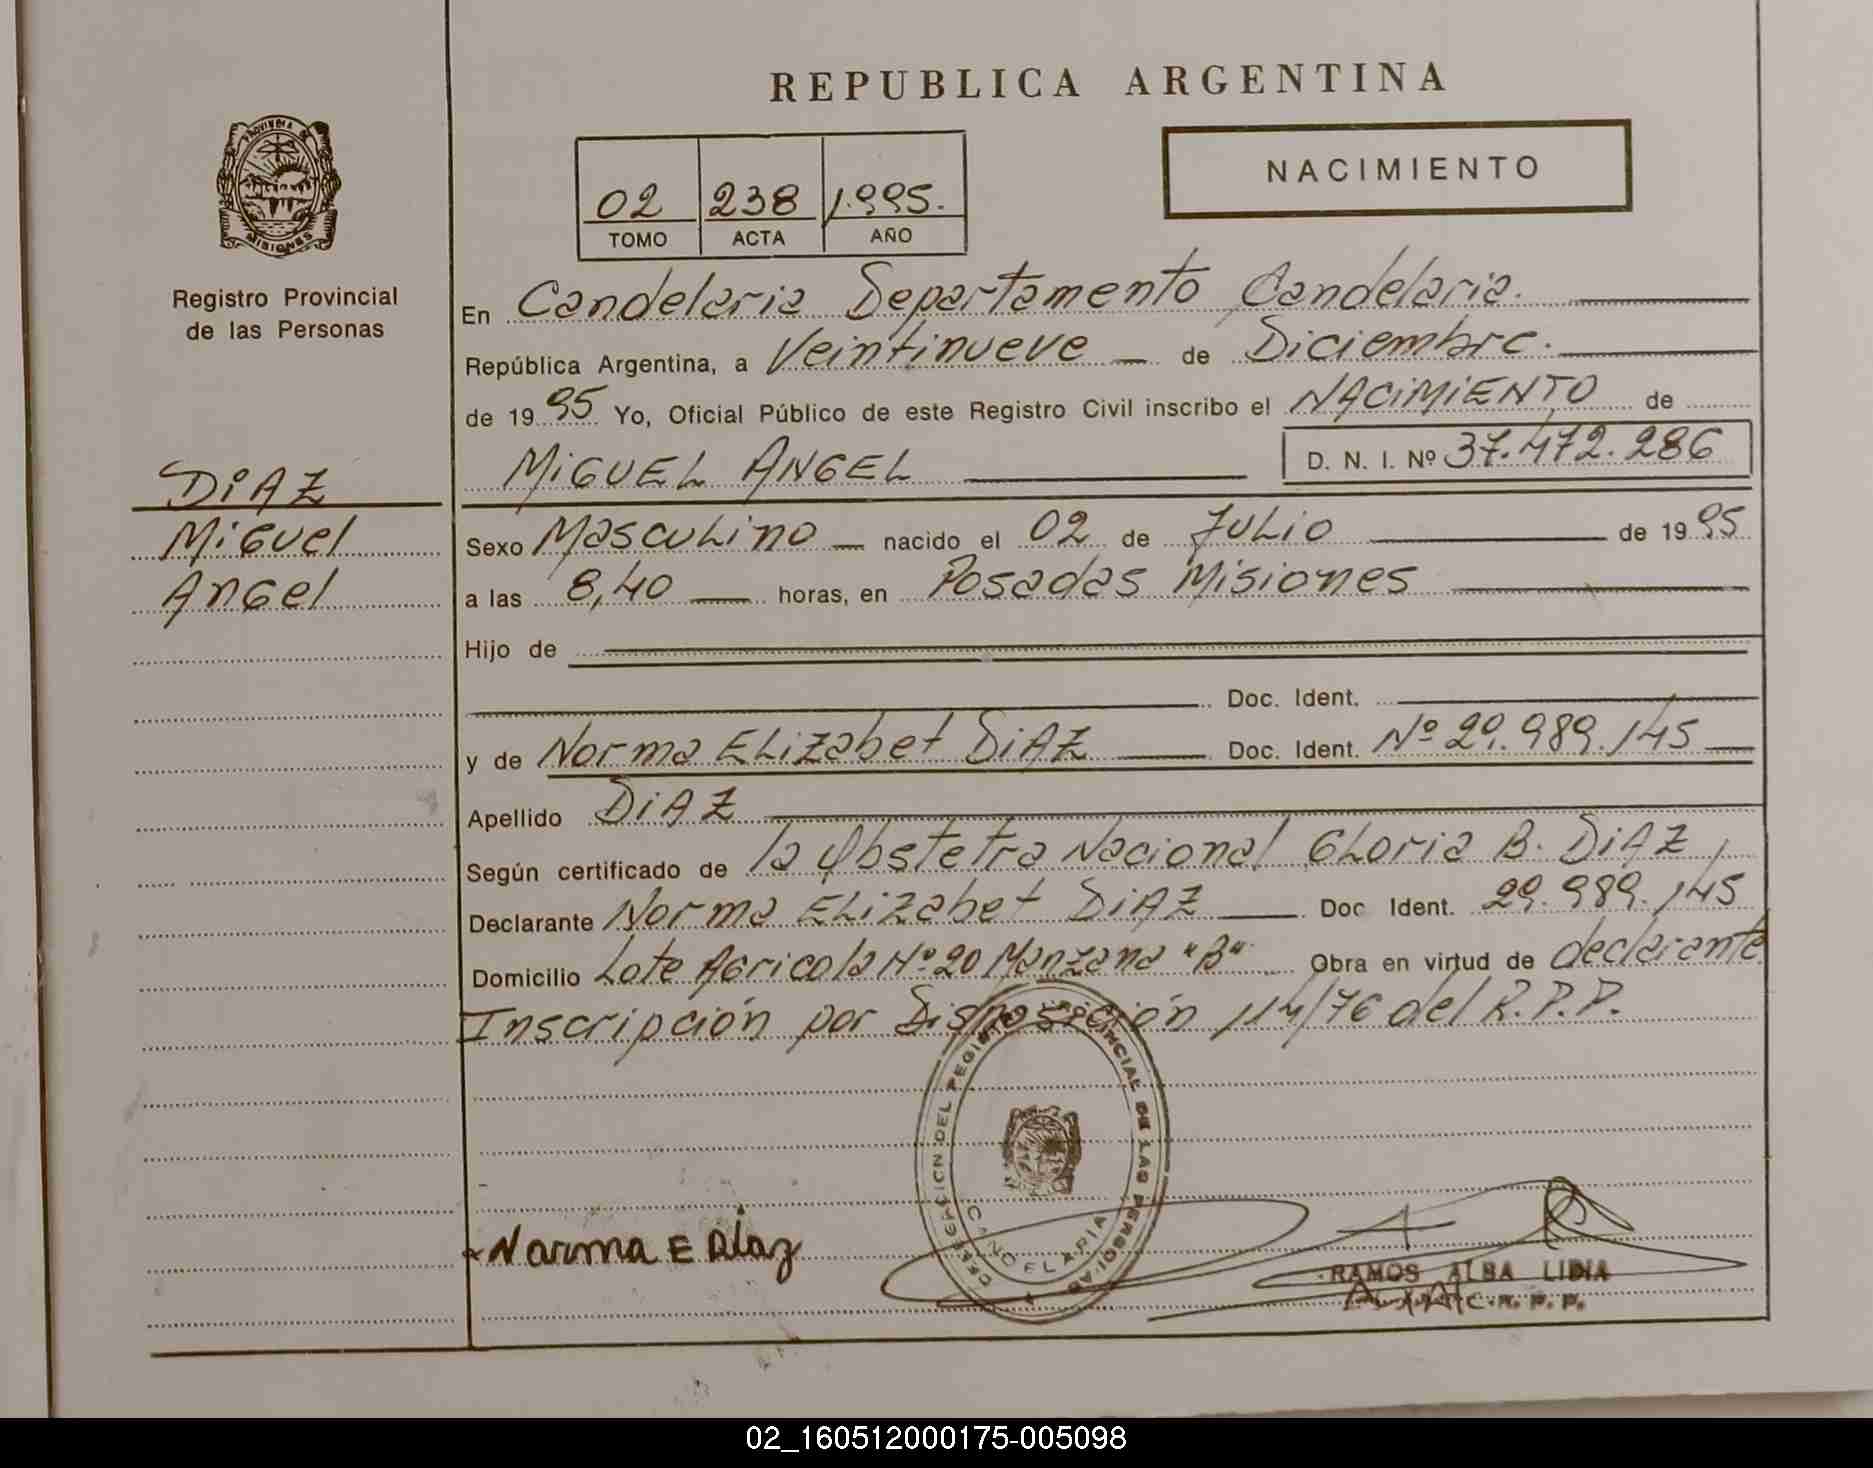 REPUBLICA ARGENTINA
PROVINCIA DE
MISIONES
Registro Provincial
de las Personas
02 238 1.995.
TOMO ACTA AÑO
NACIMIENTO
En Candelaria Departamento Candelaria.
República Argentina, a Veintinueve de Diciembre.
de 1995 Yo, Oficial Público de este Registro Civil inscribo el NACIMIENTO de
MIGUEL ANGEL D. N. I. Nº 37.472.286
DIAZ
Miguel
Angel
Sexo Masculino nacido el 02 de Julio de 1995
a las 8,40 horas, en Posadas Misiones
Hijo de
Doc. Ident.
y de Norma Elizabet DIAZ Doc. Ident. Nº 29.989.145
Apellido DIAZ
Según certificado de la Obstetra Nacional Gloria B. DIAZ
Declarante Norma Elizabet DIAZ Doc Ident. 29.989.145
Domicilio Lote Agricola Nº 20 Manzana "B" Obra en virtud de declarante
Inscripción por Disposición 114/76 del R.P.P.
DELEGACION DEL REGISTRO PROVINCIAL DE LAS PERSONAS
CANDELARIA
Norma E Diaz
RAMOS ALBA LIDIA
02_160512000175-005098